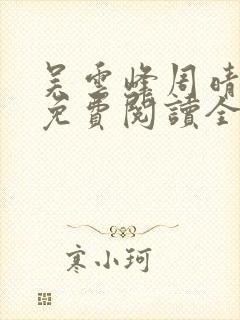 吴雲峰周晴
免費閱讀全
寒小珂